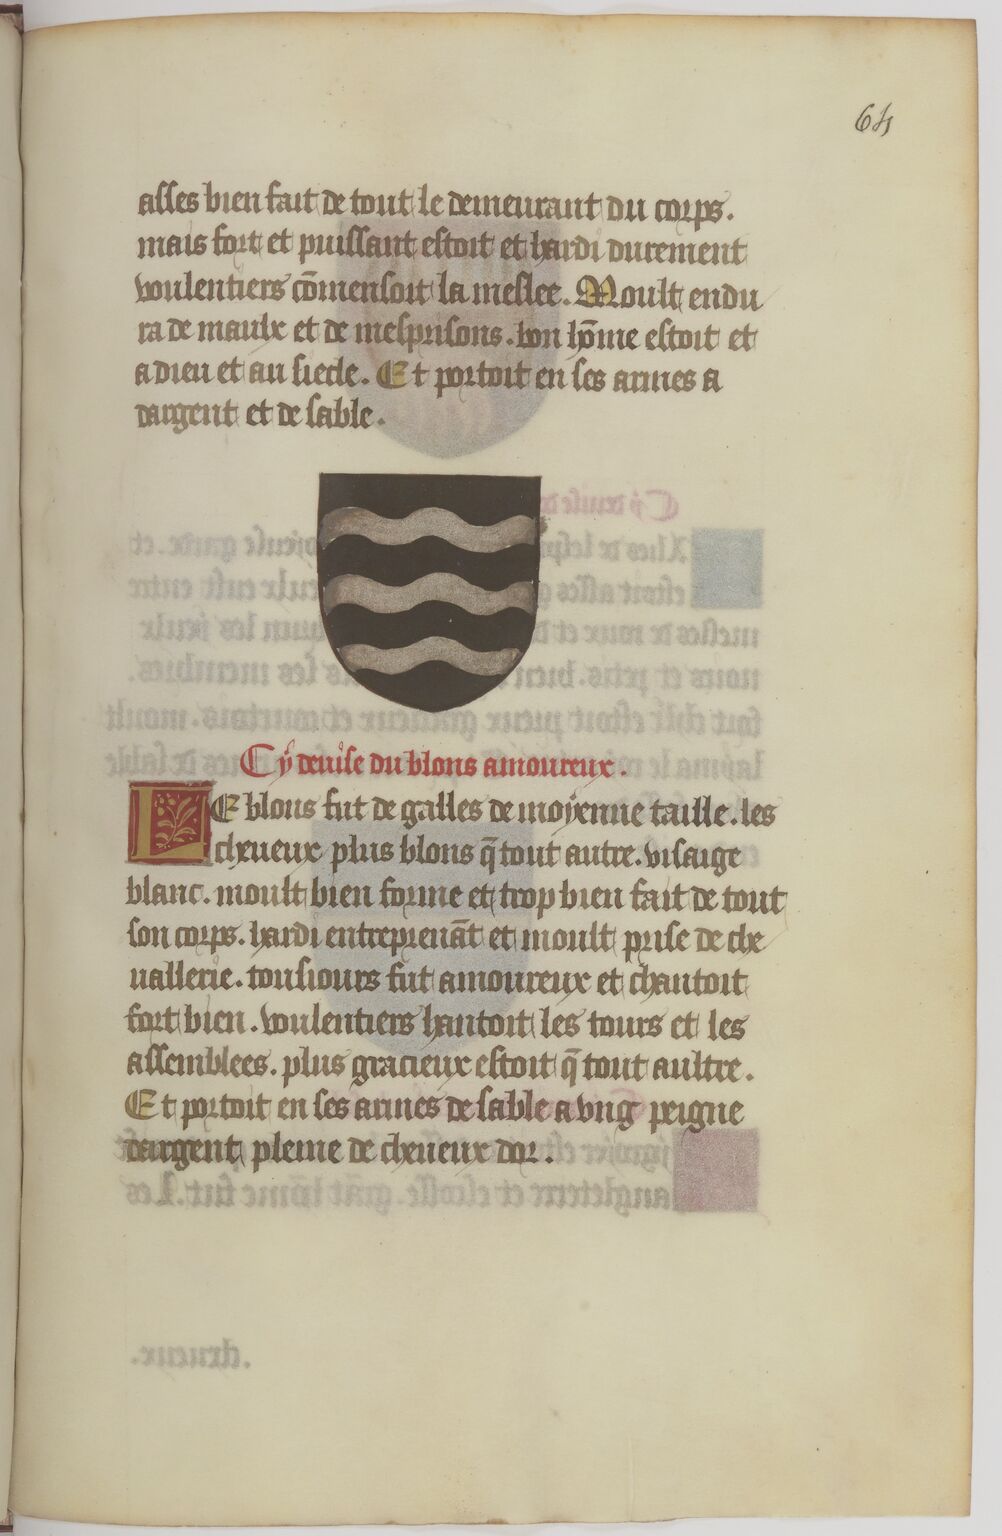 64
asses bien fait de tout le demeurant du corps.
mais fort et puissant estoit et hardi durement
voulentiers cōmensoit la meslee. Moult endu
ra de maulx et de mesprisons. bon hōme estoit et
a dieu et au siecle. Et portoit en ses armes a
dargent et de sable.
Cy deuise du blons amoureux.
LE blons fut de galles de moyenne taille. les
cheueux plus blons q̄ tout autre. visaige
blanc. moult bien forme et trop bien fait de tout
son corps. hardi entreprenāt et moult prise de che
uallerie. tousiours fut amoureux et chantoit
fort bien. voulentiers hantoit les tours et les
assemblees. plus gracieux estoit q̄ tout aultre.
Et portoit en ses armes de sable a vng peigne
dargent pleine de cheueux dor.